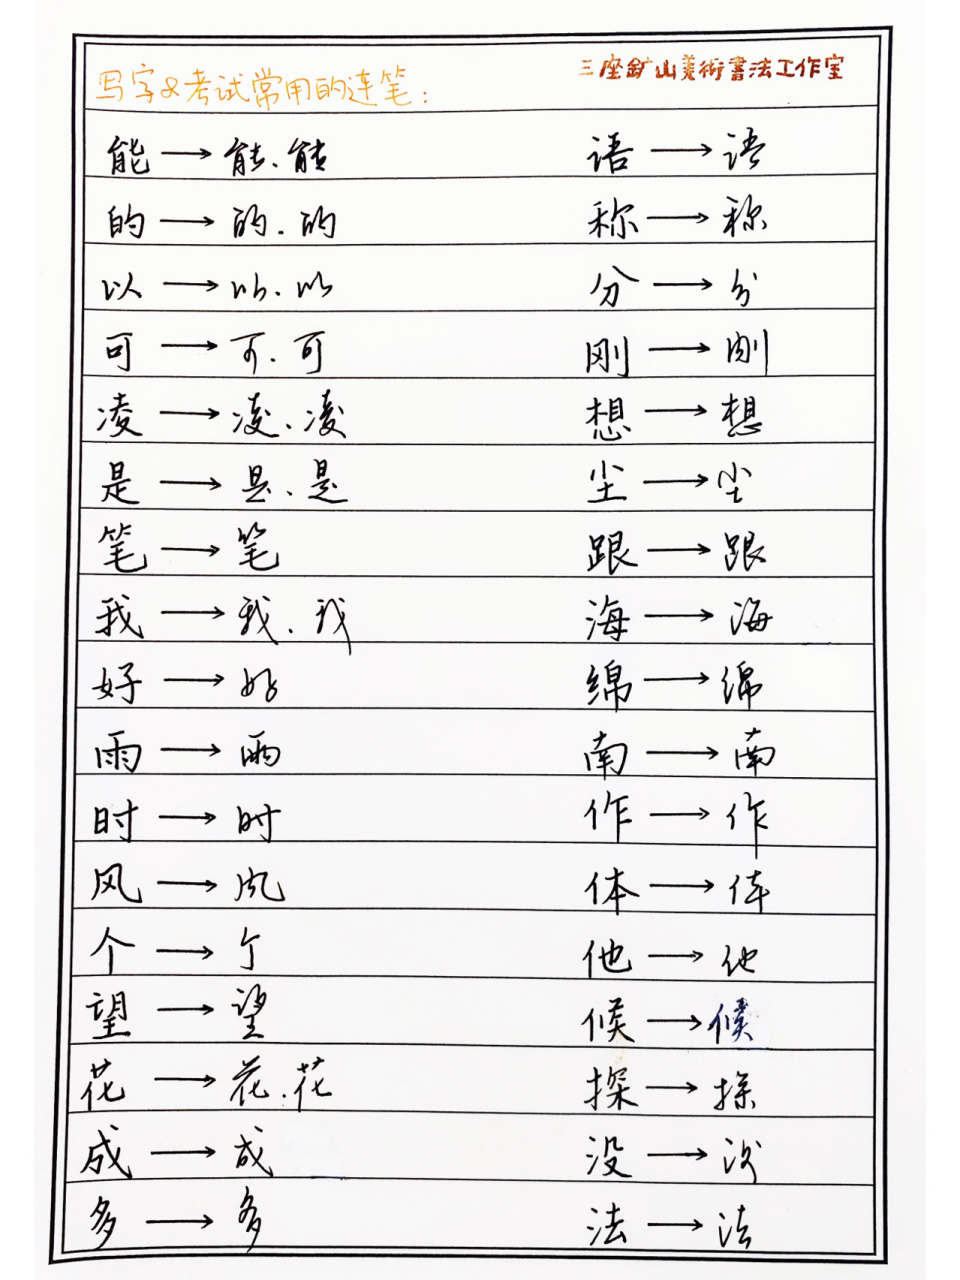 写字&考试常用的连笔： 三座鉱山美術書法工作室
能→能.能 语→语
的→的.的 称→称
以→以.以 分→分
可→可.可 刚→刚
凌→凌.凌 想→想
是→是.是 尘→尘
笔→笔 跟→跟
我→我.我 海→海
好→好 绵→绵
雨→雨 南→南
时→时 作→作
风→风 体→体
个→个 他→他
望→望 候→候
花→花.花 探→探
成→成 没→没
多→多 法→法